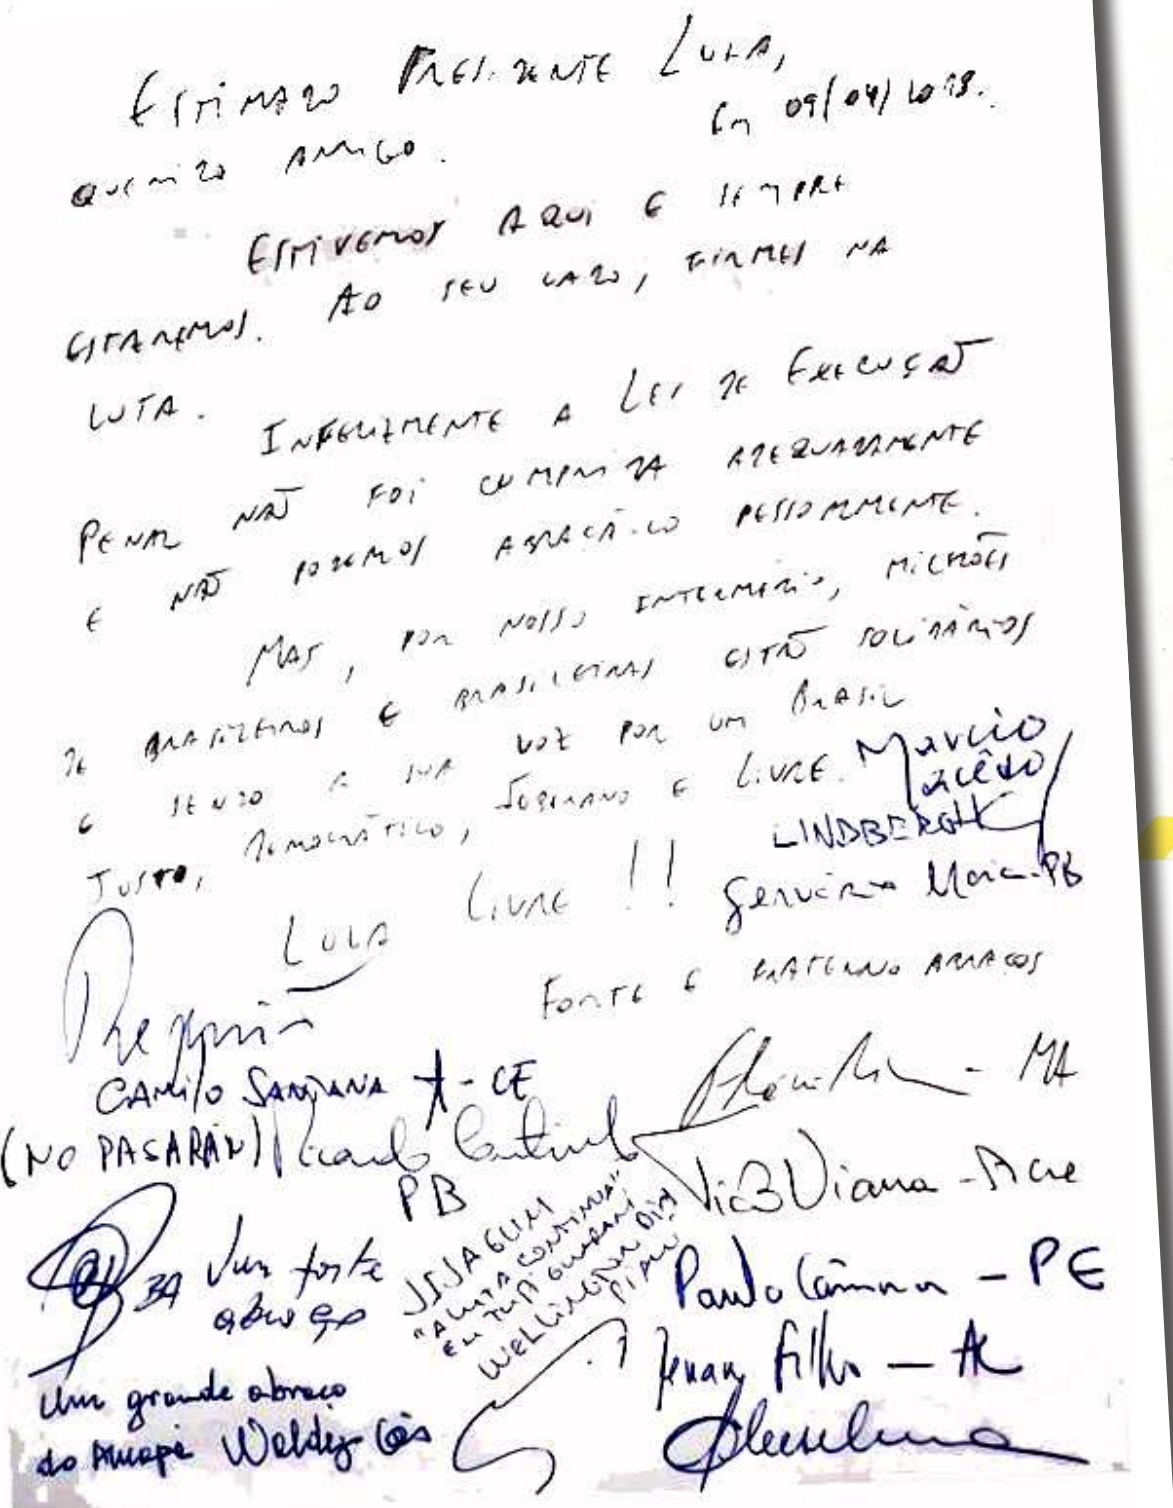 ESTIMADO PRESIDENTE LULA,
Em 09/04/2018.
QUERIDO AMIGO.
ESTIVEMOS AQUI E SEMPRE
ESTAREMOS. AO SEU LADO, FIRMES NA
LUTA.
INFELIZMENTE A LEI DE EXECUÇÃO
PENAL NÃO FOI CUMPRIDA ADEQUADAMENTE
E NÃO PODEMOS ABRAÇÁ-LO PESSOALMENTE.
MAS, POR NOSSO INTERMÉDIO, MILHÕES
DE BRASILEIROS E BRASILEIRAS ESTÃO SOLIDÁRIOS
E SENDO A SUA VOZ POR UM BRASIL
JUSTO, DEMOCRÁTICO, SOBERANO E LIVRE.
Marcio
Macêdo
LINDBERGH
Gervásio Maia-PB
LULA LIVRE!!
FORTE E FRATERNO ABRAÇOS
Requião
CAMILO SANTANA - CE
- MA
(NO PASARÁN) Ricardo Coutinho
PB
Tião Viana - Acre
BA Um forte
abraço
JAJAGUM
"A LUTA CONTINUA"
EM TUPI GUARANI
WELLINGTON DIAS
PIAUÍ
Paulo Câmara - PE
Renan Filho - AL
Um grande abraço
do Amapá Waldez Góes